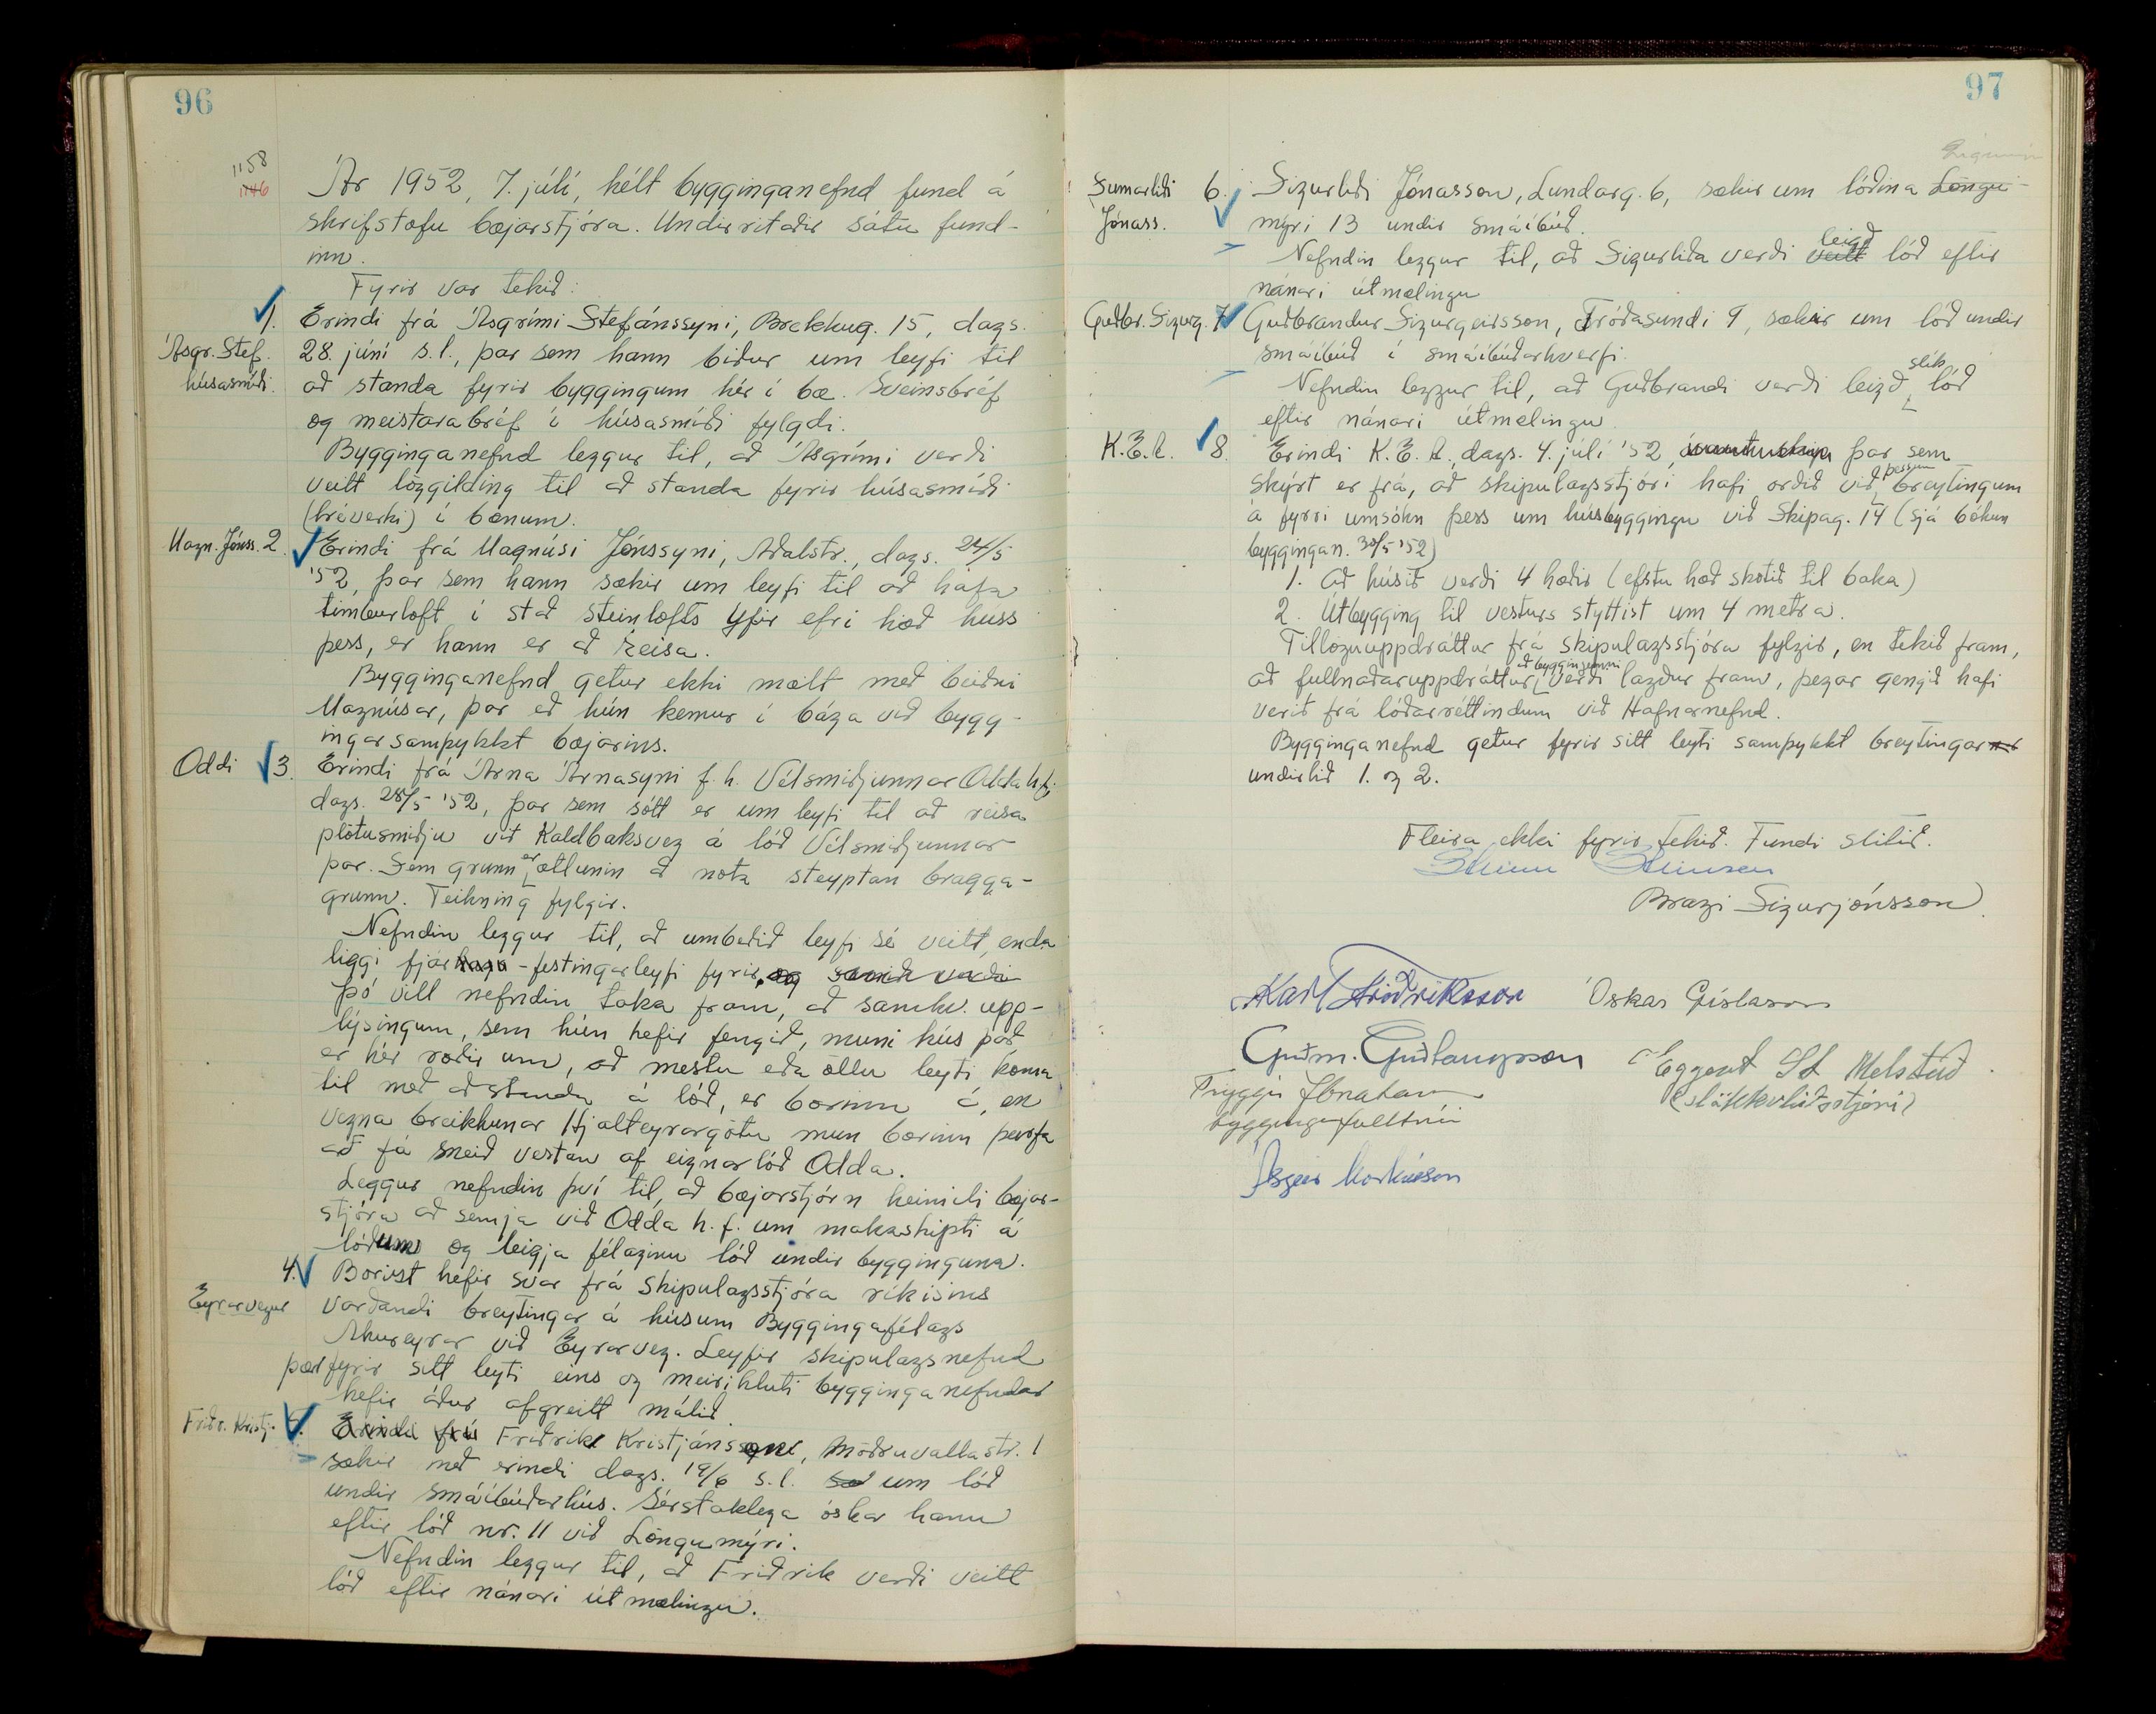 96
1158
1146
Ár 1952, 7. júlí, hélt bygginganefnd fund á
skrifstofu bæjarstjóra. Undirritaðir sátu fund-
inn.
Fyrir var tekið:
1. Erindi frá Ásgrími Stefánssyni, Brekkug. 15, dags.
Ásgr. Stef. 28. júní s.l., þar sem hann biður um leyfi til
húsasmíði. að standa fyrir byggingum hér í bæ. Sveinsbréf
og meistarabréf í húsasmíði fylgdi.
Bygginganefnd leggur til, að Ásgrími verði
veitt löggilding til að standa fyrir húsasmíði
(tréverki) í bænum.
Magn. Jónss. 2. Erindi frá Magnúsi Jónssyni, Aðalstr., dags. 24/5
'52, þar sem hann sækir um leyfi til að hafa
timburloft í stað steinlofts yfir efri hæð húss
þess, er hann er að reisa.
Bygginganefnd getur ekki mælt með beiðni
Magnúsar, þar eð hún kemur í bága við bygg-
ingarsamþykkt bæjarins.
Oddi 3. Erindi frá Árna Árnasyni f. h. Vélsmiðjunnar Odda h.f.
dags. 28/5 '52, þar sem sótt er um leyfi til að reisa
plötusmiðju við Kaldbaksveg á lóð Vélsmiðjunnar
þar. Sem grunn er ætlunin að nota steyptan bragga-
grunn. Teikning fylgir.
Nefndin leggur til, að umbeðið leyfi sé veitt, enda
liggi fjár -festingarleyfi fyrir, og samið verði
Þó vill nefndin taka fram, að samkv. upp-
lýsingum, sem hún hefir fengið, muni hús það
er hér ræðir um, að mestu eða öllu leyti koma
til með að standa á lóð, er bærinn á, en
vegna breikkunar Hjalteyrargötu mun bærinn þurfa
að fá sneið vestan af eignarlóð Odda.
Leggur nefndin því til, að bæjarstjórn heimili bæjar-
stjóra að semja við Odda h.f. um makaskipti á
lóðum og leigja félaginu lóð undir bygginguna.
4. Borist hefir svar frá skipulagsstjóra ríkisins
Eyrarvegur varðandi breytingar á húsum Byggingafélags
Akureyrar við Eyrarveg. Leyfir skipulagsnefnd
þær fyrir sitt leyti eins og meirihluti bygginganefndar
hefir áður afgreitt málið.
Friðr. Kristj. 5. Erindi frá Friðrik Kristjánsson, Möðruvallastr. 1
sækir með erindi dags. 19/6 s.l. um lóð
undir smáíbúðarhús. Sérstaklega óskar hann
eftir lóð nr. 11 við Löngumýri.
Nefndin leggur til, að Friðrik verði veitt
lóð eftir nánari útmælingu.
97
Sumarliði 6. Sigurliði Jónasson, Lundarg. 6, sækir um lóðina Löngu-
Jónass. mýri 13 undir smáíbúð.
leigð
Nefndin leggur til, að Sigurliða verði veitt lóð eftir
nánari útmælingu
Guðbr. Sigurg. 7. Guðbrandur Sigurgeirsson, Fróðasundi 9, sækir um lóð undir
smáíbúð í smáíbúðarhverfi.
slík
Nefndin leggur til, að Guðbrandi verði leigð lóð
eftir nánari útmælingu.
K.E.A. 8. Erindi K.E.A., dags. 4. júlí '52, þar sem
þessum
skýrt er frá, að skipulagsstjóri hafi orðið við breytingum
á fyrri umsókn þess um húsbyggingu við Skipag. 14 (sjá bókun
byggingan. 30/5 '52)
1. Að húsið verði 4 hæðir (efstu hæð skotið til baka)
2. Útbygging til vesturs styttist um 4 metra.
Tillöguuppdráttur frá skipulagsstjóra fylgir, en tekið fram,
að byggingunni
að fullnaðaruppdráttur verði lagður fram, þegar gengið hafi
verið frá lóðarréttindum við Hafnarnefnd.
Bygginganefnd getur fyrir sitt leyti samþykkt breytingarnar
undirlið 1. og 2.
Fleira ekki fyrir tekið. Fundi slitið.
Steinn Steinsen
Bragi Sigurjónsson.
Karl Friðriksson Óskar Gíslason
Guðm. Guðlaugsson Eggert St Melstað
(slökkviliðsstjóri)
Tryggvi Jónatans
byggingafulltrúi
Ásgeir Markússon